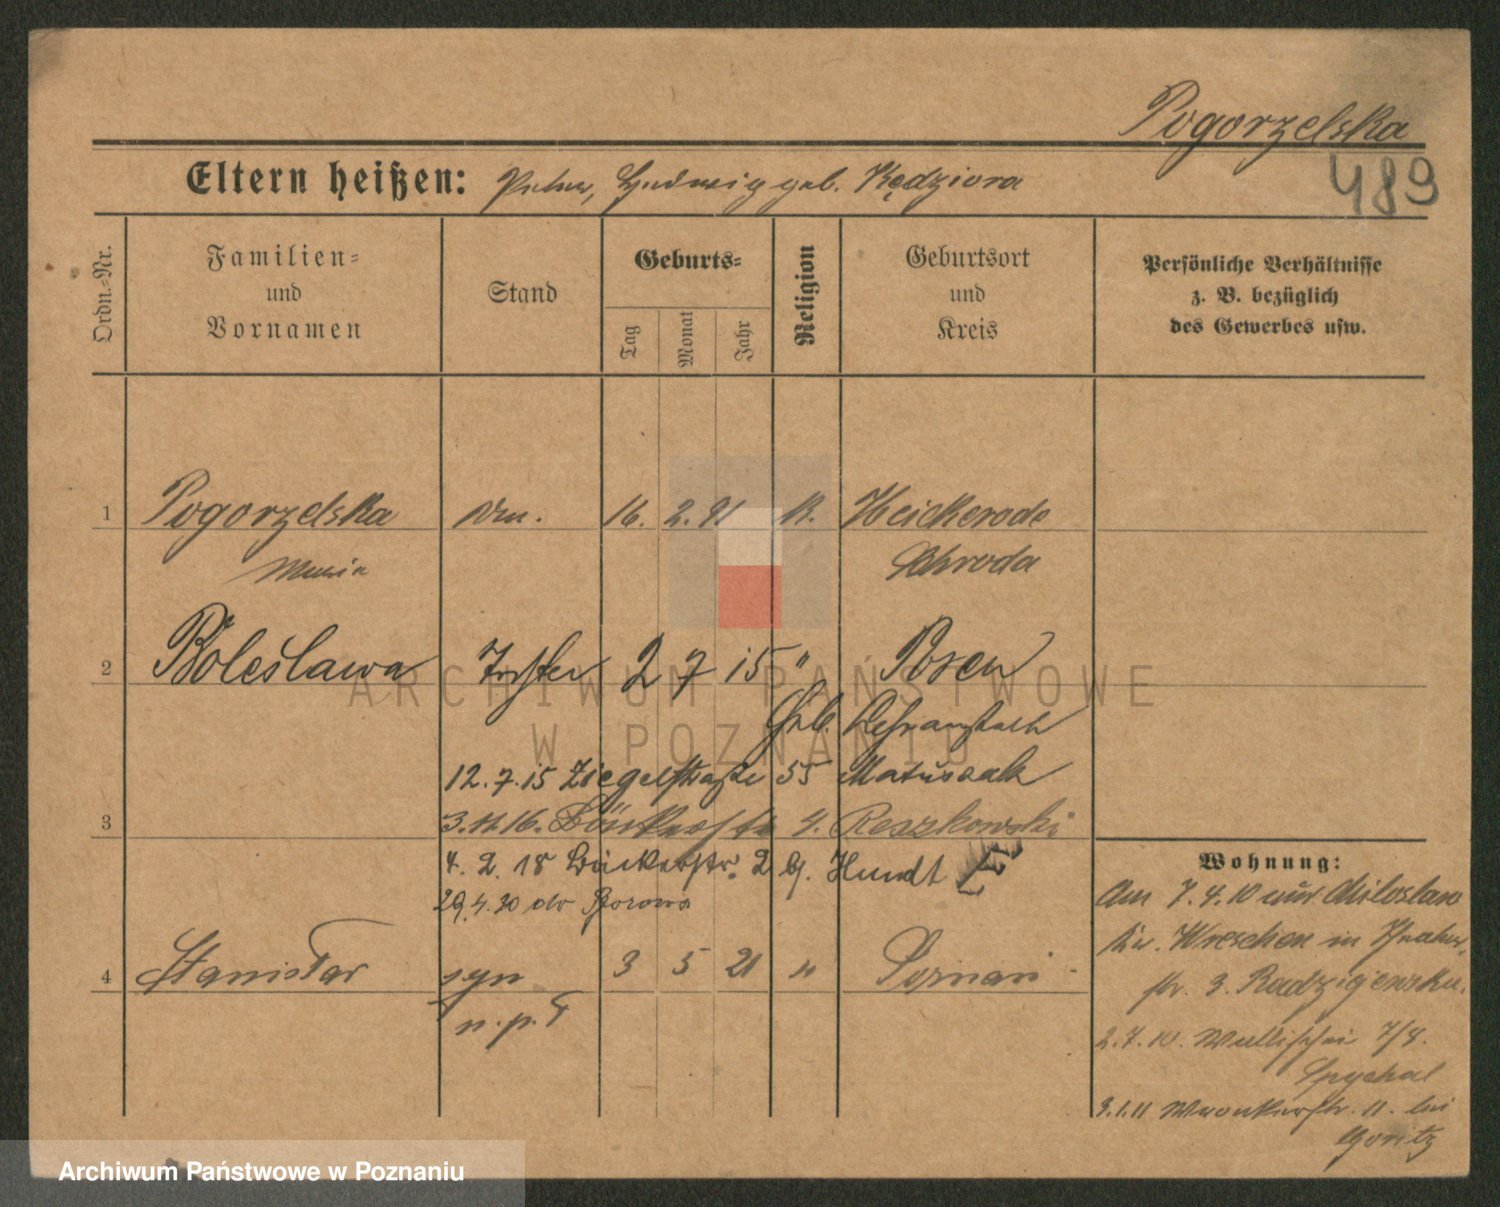 Pogorzelska
489
Eltern heißen: Peter, Hedwig geb. Kędziora
Ordn.-Nr.
Familien- und Vornamen
Stand
Geburts-
Tag
Monat
Jahr
Religion
Geburtsort und Kreis
Persönliche Verhältnisse z. B. bezüglich des Gewerbes usw.
1 Pogorzelska 16. 2. 91 k. Heickerode
Maria Schroda
2 Bolesława Tochter 2 7 15 " Posen
Geb.
12.7.15 Ziegelstraße 55 Matuszak
3
3.11.16. Bäckerstr 4. Reszkowski
4. 2. 18 Bäckerstr. 2 b/. Hundt
29.4.30 do
4 Stanisław syn 3 5 21 " Poznań
n.p.
Wohnung:
Am 7.4.10 aus Miloslaw
Kr. Wreschen in
str. 3.
2.7.10. Wallischei 7/8.
Spychal
3.1.11 Wronkerstr. 11. bei
Goritz
ARCHIWUM PAŃSTWOWE
W POZNANIU
Archiwum Państwowe w Poznaniu